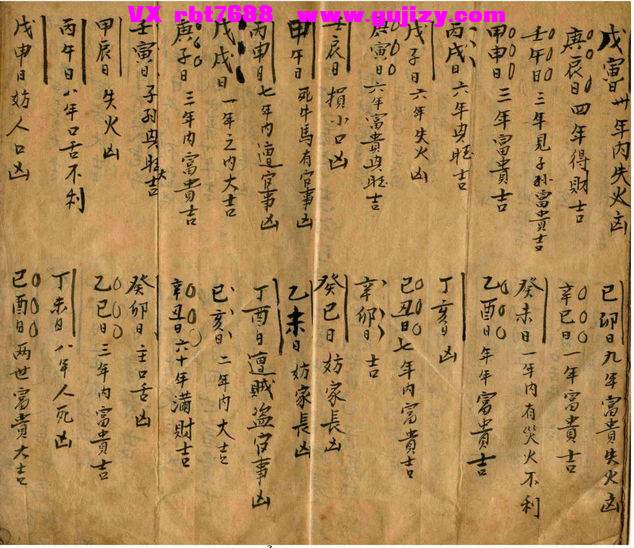 VX rbt7688 www.gujizy.com
戊寅日卅年内失火凶
庚辰日四年得財吉
壬午日三年見子孫富貴吉
甲申日三年富貴吉
丙戌日六年興旺吉
戊子日六年失火凶
庚寅日六年富貴興旺吉
壬辰日損小口凶
甲午日死牛馬有官事凶
丙申日七年内遭官事凶
戊戌日一年之内大吉
庚子日三年内富貴吉
壬寅日子孫興旺大吉
甲辰日失火凶
丙午日八年口舌不利
戊申日妨人口凶
己卯日九年富貴失火凶
辛巳日一年富貴吉
癸未日一年内有災火不利
乙酉日年年富貴吉
丁亥日凶
己丑日七年内富貴吉
辛卯日吉
癸巳日妨家長凶
乙未日妨家長凶
丁酉日遭賊盜官事凶
己亥日二年内大吉
辛丑日六十年滿財吉
癸卯日主口舌凶
乙巳日三年内富貴吉
丁未日八年人死凶
己酉日两世富貴大吉